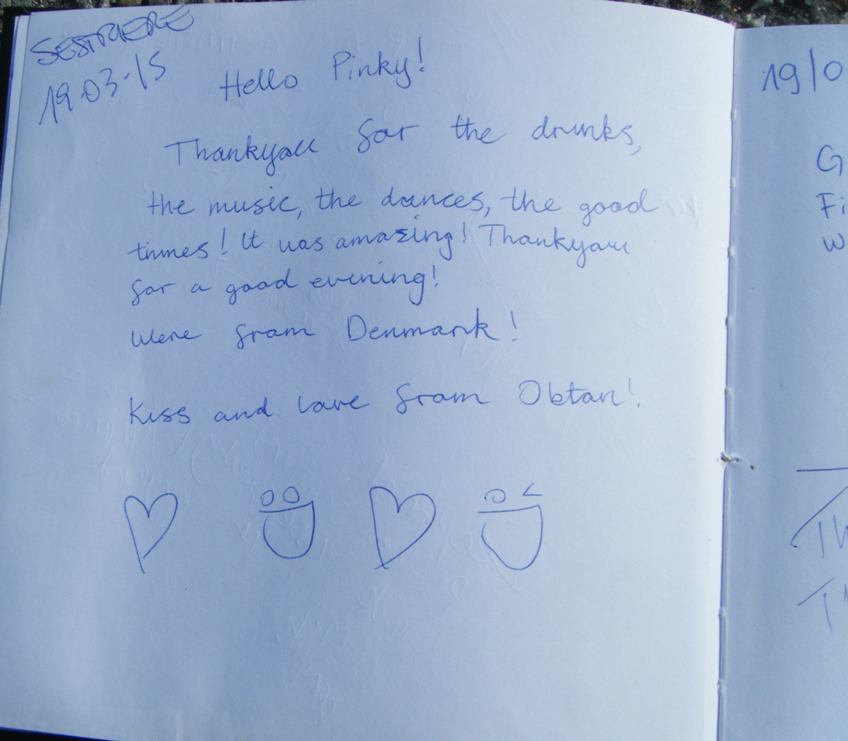 SESTRIERE
19.03-15
Hello Pinky!
Thankyou for the drinks,
the music, the dances, the good
times! It was amazing! Thankyou
for a good evening!
Were from Denmark!
Kiss and love from Obtan!
19/0
G
Fi
W
Th
Th